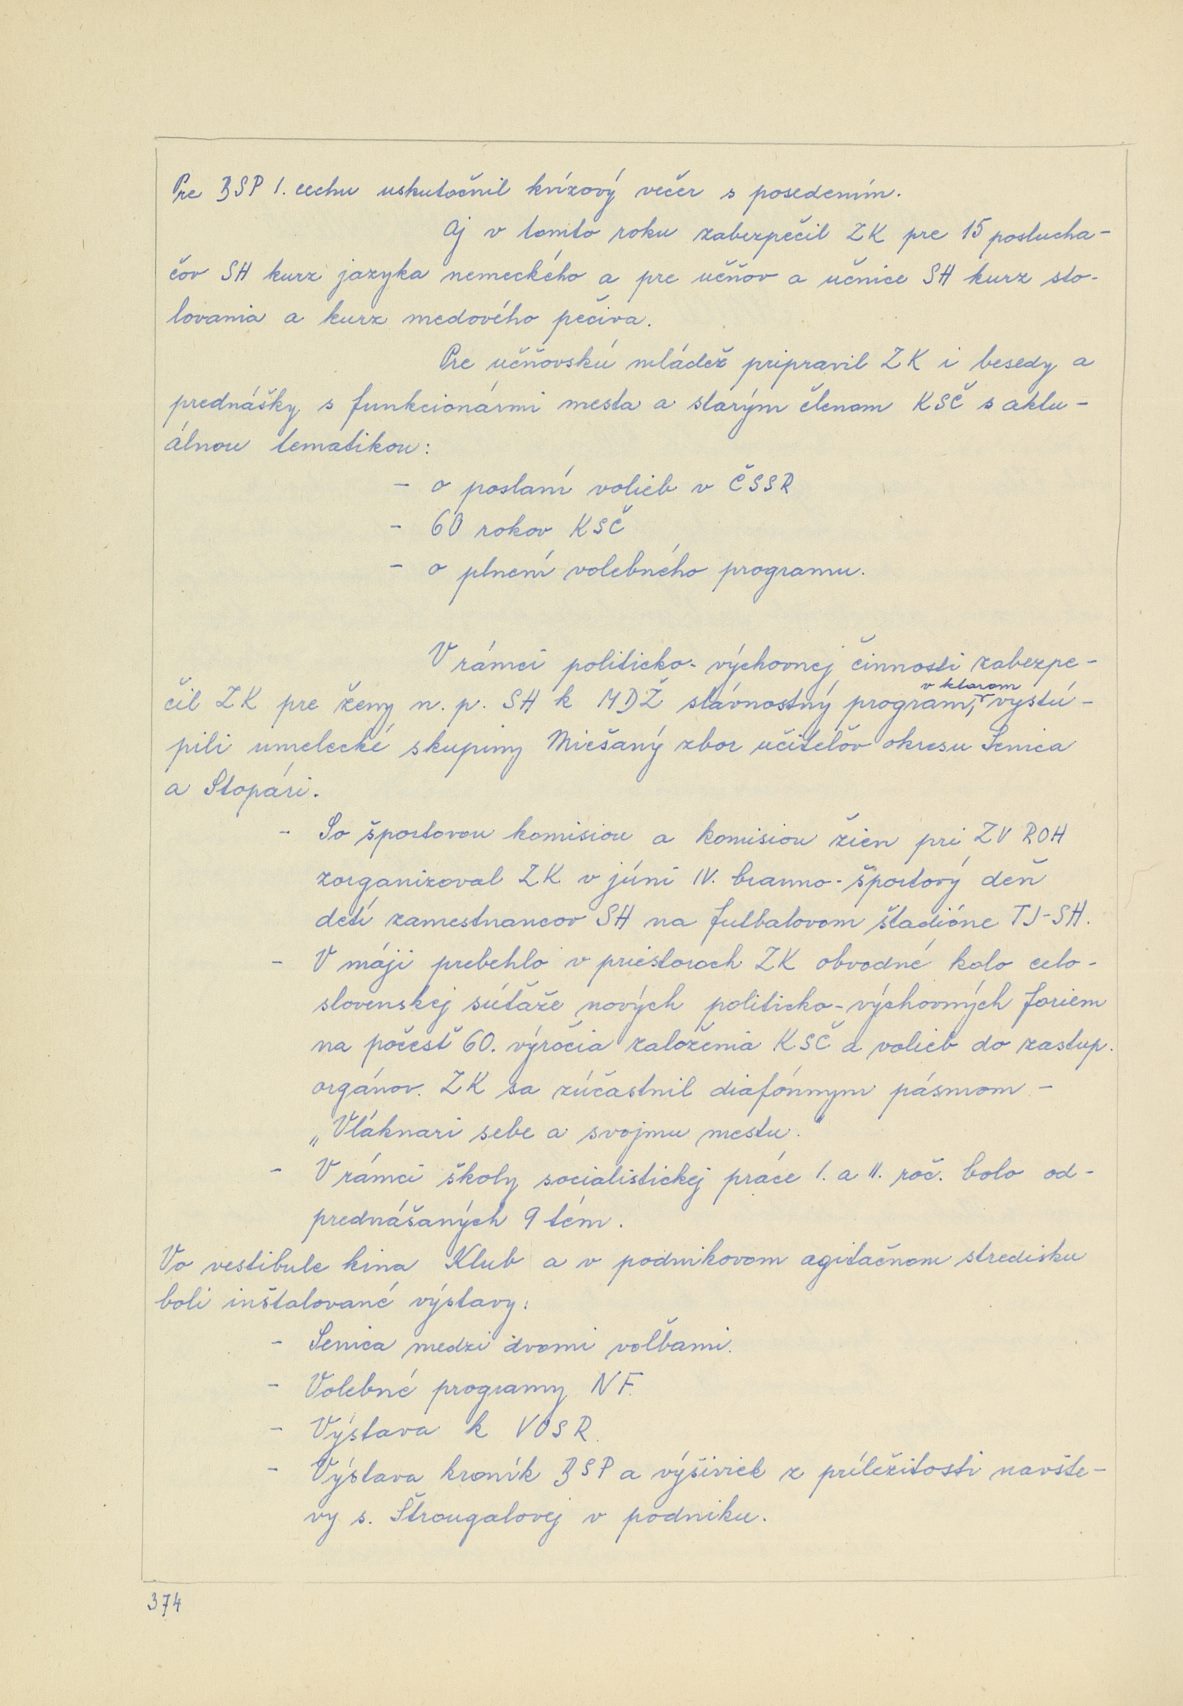 Pre BSP 1. cechu uskutočnil kvízový večer s posedením.
Aj v tomto roku zabezpečil ZK pre 15 poslucha-
čov SH kurz jazyka nemeckého a pre učňov a učnice SH kurz sto-
lovania a kurz medového pečiva.
Pre učňovskú mládež pripravil ZK i besedy a
prednášky s funkcionármi mesta a starým členom KSČ s aktu-
álnou tematikou:
- o poslaní volieb v ČSSR
- 60 rokov KSČ
- o plnení volebného programu.
V rámci politicko-výchovnej činnosti zabezpe-
čil ZK pre ženy n. p. SH k MDŽ slávnostný program, v ktorom vystú-
pili umelecké skupiny Miešaný zbor učiteľov okresu Senica
a Stopári.
- So športovou komisiou a komisiou žien pri ZV ROH
zorganizoval ZK v júni IV. branno-športový deň
detí zamestnancov SH na futbalovom štadióne TJ-SH.
- V máji prebehlo v priestoroch ZK obvodné kolo celo-
slovenskej súťaže nových politicko-výchovných foriem
na počesť 60. výročia založenia KSČ a volieb do zastup.
orgánov. ZK sa zúčastnil diafónnym pásmom -
„Vláknari sebe a svojmu mestu."
- V rámci školy socialistickej práce I. a II. roč. bolo od-
prednášaných 9 tém.
Vo vestibule kina Klub a v podnikovom agitačnom stredisku
boli inštalované výstavy:
- Senica medzi dvomi voľbami.
- Volebné programy NF.
- Výstava k VOSR.
- Výstava kroník BSP a výšiviek z príležitosti návšte-
vy s. Štrougalovej v podniku.
374